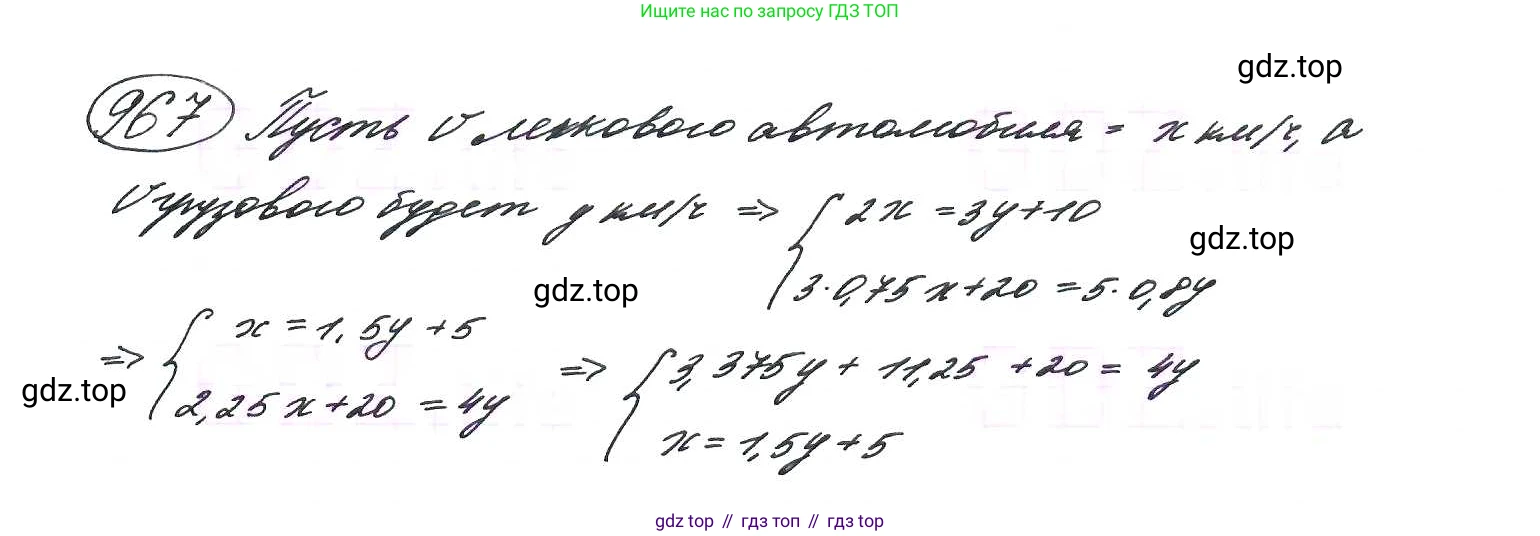 Ищите нас по запросу ГДЗ ТОП
gdz.top
967 Пусть v легкового автомобиля = x км/ч, а
v грузового будет y км/ч => { 2x = 3y + 10
gdz.top
3·0,75x + 20 = 5·0,8y
gdz.top
=> { x = 1,5y + 5
2,25x + 20 = 4y
=> { 3,375y + 11,25 + 20 = 4y
x = 1,5y + 5
gdz.top
gdz top // гдз топ // гдз top